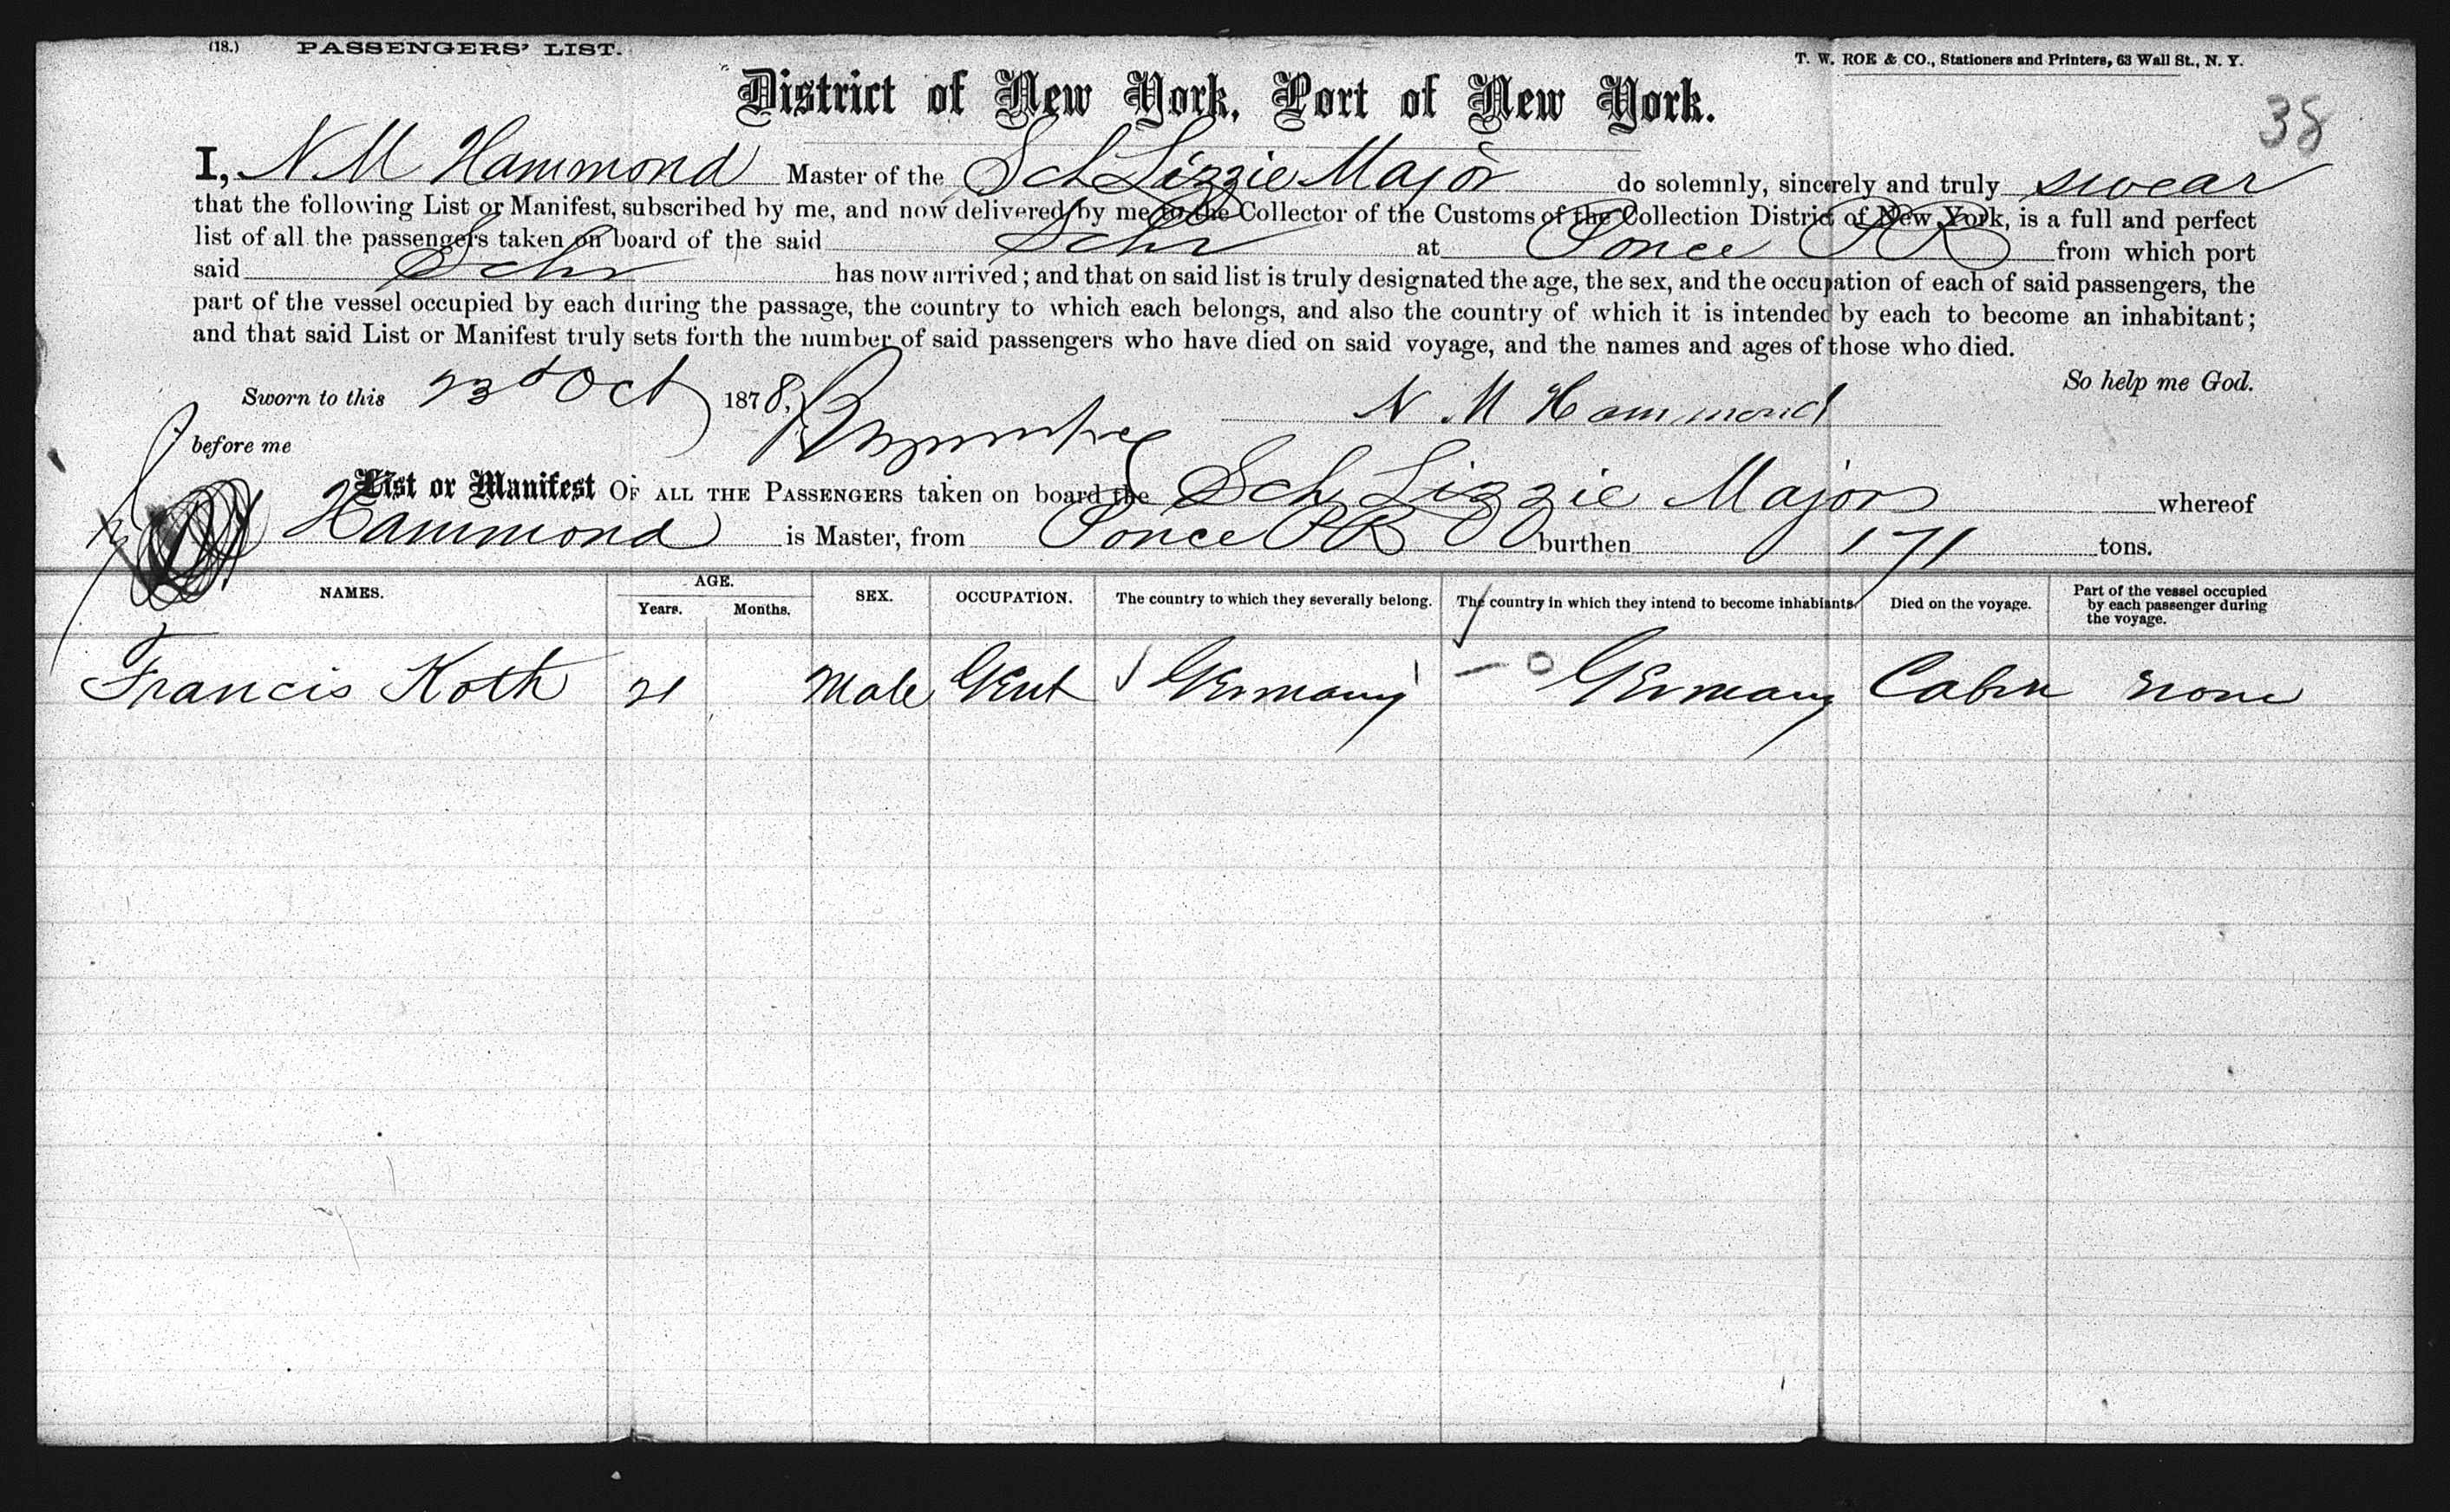 (18.) PASSENGERS' LIST. T. W. ROE & CO., Stationers and Printers, 63 Wall St., N. Y.
District of New York, Port of New York.
38
I, N M Hammond Master of the Sch Lizzie Major do solemnly, sincerely and truly swear
that the following List or Manifest, subscribed by me, and now delivered by me to the Collector of the Customs of the Collection District of New York, is a full and perfect
list of all the passengers taken on board of the said Schr at Ponce PR from which port
said Schr has now arrived; and that on said list is truly designated the age, the sex, and the occupation of each of said passengers, the
part of the vessel occupied by each during the passage, the country to which each belongs, and also the country of which it is intended by each to become an inhabitant;
and that said List or Manifest truly sets forth the number of said passengers who have died on said voyage, and the names and ages of those who died.
So help me God.
Sworn to this 23d Oct 1878, N M Hammond
before me
List or Manifest OF ALL THE PASSENGERS taken on board the Sch Lizzie Major whereof
Hammond is Master, from Ponce PR burthen 171 tons.
NAMES. AGE. Years. Months. SEX. OCCUPATION. The country to which they severally belong. The country in which they intend to become inhabitants. Died on the voyage. Part of the vessel occupied by each passenger during the voyage.
Francis Koth 21 Male Gent Germany Germany Cabin none